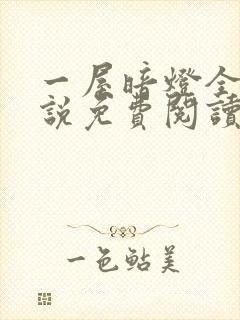 一屋暗燈全
說免費閱讀
一色鮎美